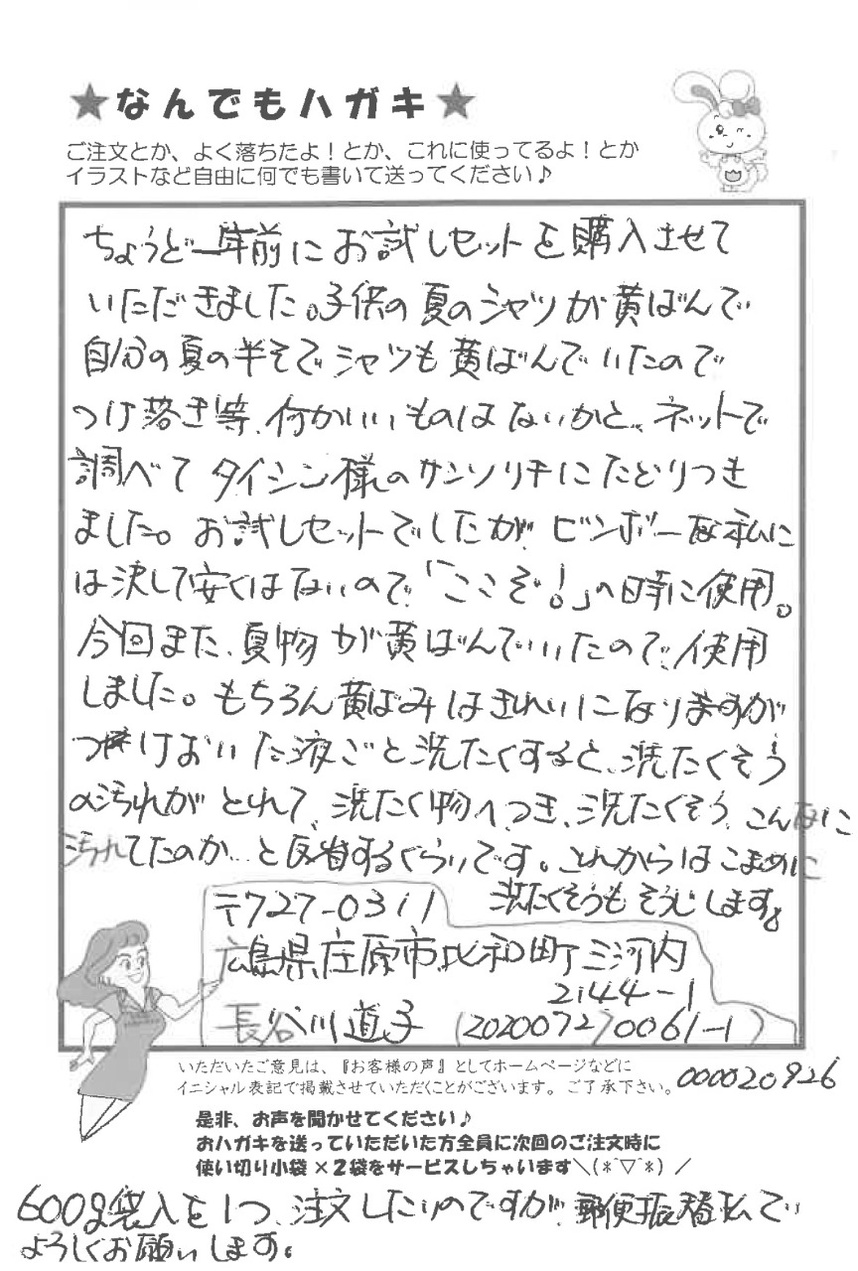 ★なんでもハガキ★
ご注文とか、よく落ちたよ！とか、これに使ってるよ！とか
イラストなど自由に何でも書いて送ってください♪
ちょうど一年前にお試しセットを購入させて
いただきました。子供の夏のシャツが黄ばんで
自分の夏の半そでシャツも黄ばんでいたので
つけ落き等、何かいいものはないかと、ネットで
調べてタイシン様のサンソリキにたどりつき
ました。お試しセットでしたが、ビンボーな私に
は決して安くはないので、「ここぞ！」の時に使用。
今回また、夏物が黄ばんでいたので、使用
しました。もちろん黄ばみはきれいになりますが
つけおいた液ごと洗たくすると、洗たくそう
の汚れがとれて、洗たく物へつき、洗たくそう、こんなに
汚れてたのか…と反省するぐらいです。これからはこまめに
洗たくそうもそうじします。
〒727-0311
広島県庄原市比和町三河内
2144-1
長谷川道子 (202007270061-1)
いただいたご意見は、『お客様の声』としてホームページなどに
イニシャル表記で掲載させていただくことがございます。ご了承下さい。
000020926
是非、お声を聞かせてください♪
おハガキを送っていただいた方全員に次回のご注文時に
使い切り小袋×2袋をサービスしちゃいます＼(*￣▽￣*)／
600g袋入を1つ、注文したいのですが、郵便振替払で
よろしくお願いします。